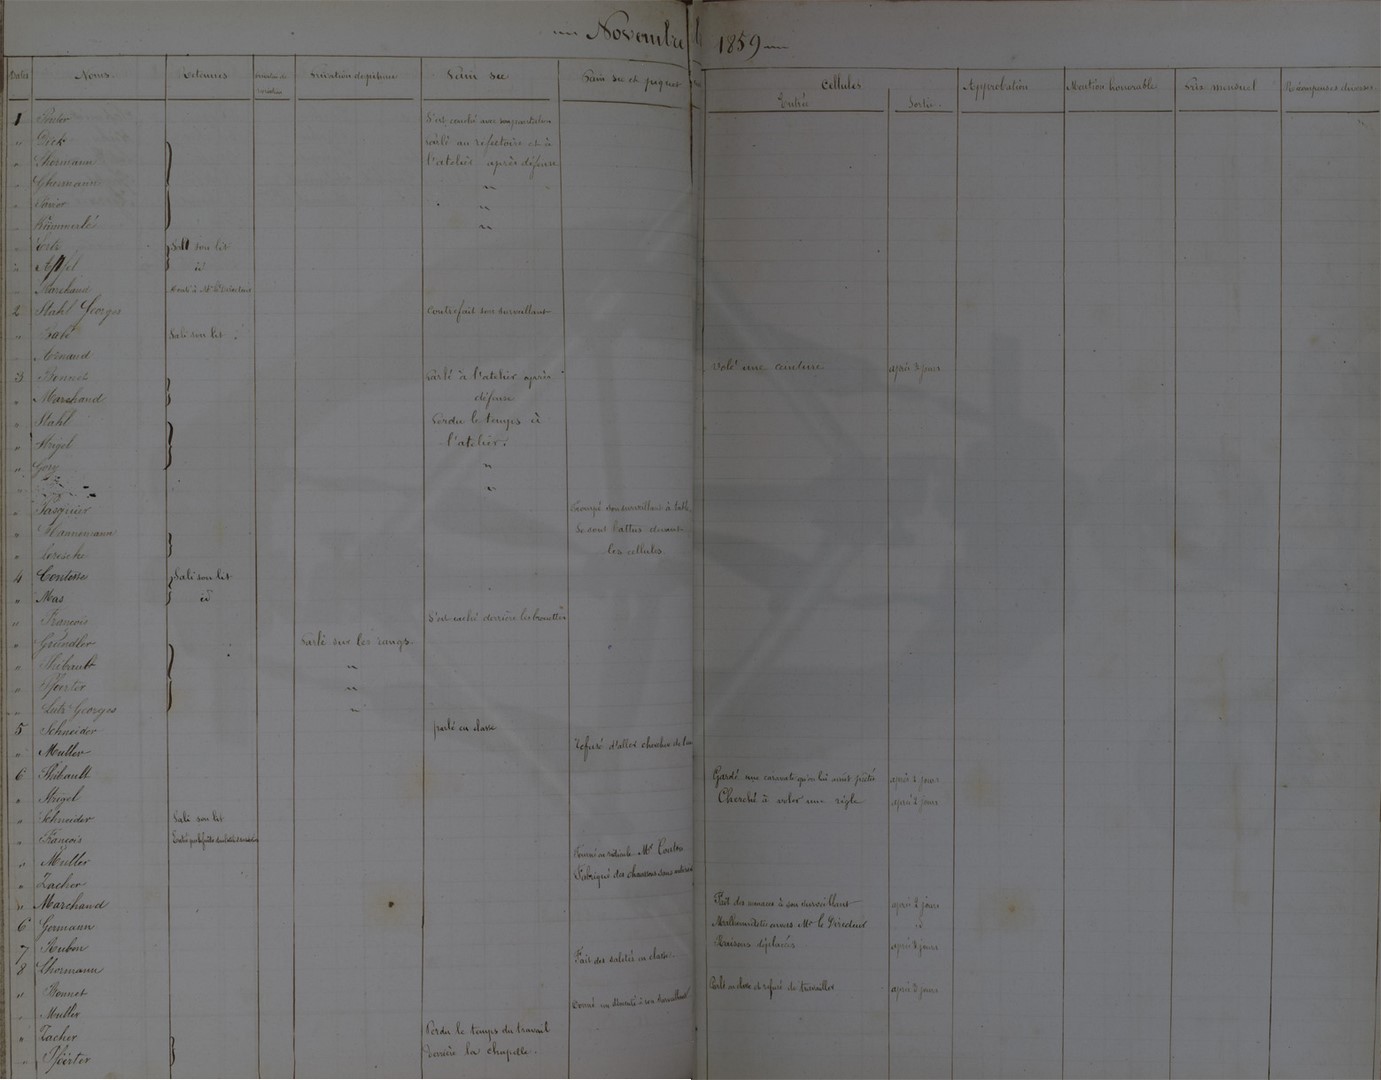 Novembre 1859
Dates Noms Retenues Privation de récréation Privation de pitance Pain sec Pain sec et piquet Cellules Approbation Mention honorable Prix mensuel Récompenses diverses
Entrée Sortie
1 S'est couché avec son pantalon
" Dick Parlé au réfectoire et à
" Thormann l'atelier après défense
" Ghermann "
" "
" Kümmerlé "
" Sali son lit
" Apfel id
" Marchand
2 Stahl Georges Contrefait son surveillant
" Sali son lit
" Arnaud Volé une ceinture après 3 jours
3 Bonnet Parlé à l'atelier après
" Marchand défense
" Stahl Perdu le temps à
" Strigel l'atelier.
" Gory "
" "
" Pasquier Trompé son surveillant à table
" Hannemann Se sont battus devant
" les cellules
4 Contesse Sali son lit
" Mas id
" François S'est caché derrière les brouettes
" Gründler Parlé sur les rangs.
" Thibault "
" Pfoerter "
" Lutz Georges "
5 Schneider parlé en classe
" Muller Refusé d'aller chercher de l'eau
6 Thibault Gardé une cravate qu'on lui avait prêtée après 2 jours
" Strigel Cherché à voler une règle après 2 jours
" Schneider Sali son lit
" François
" Muller Tourné en ridicule Mr
" Zacher Fabriqué des chaussons sans
" Marchand Fait des menaces à son surveillant après 2 jours
6 Germann Malhonnêteté envers Mr le Directeur
7 Kubon Raisons déplacées après 3 jours
8 Thormann Fait des saletés en classe.
" Bonnet Parlé en classe et refusé de travailler après 3 jours
" Muller Donné un démenti à son surveillant
" Zacher Perdu le temps du travail
" Pfoerter derrière la chapelle.